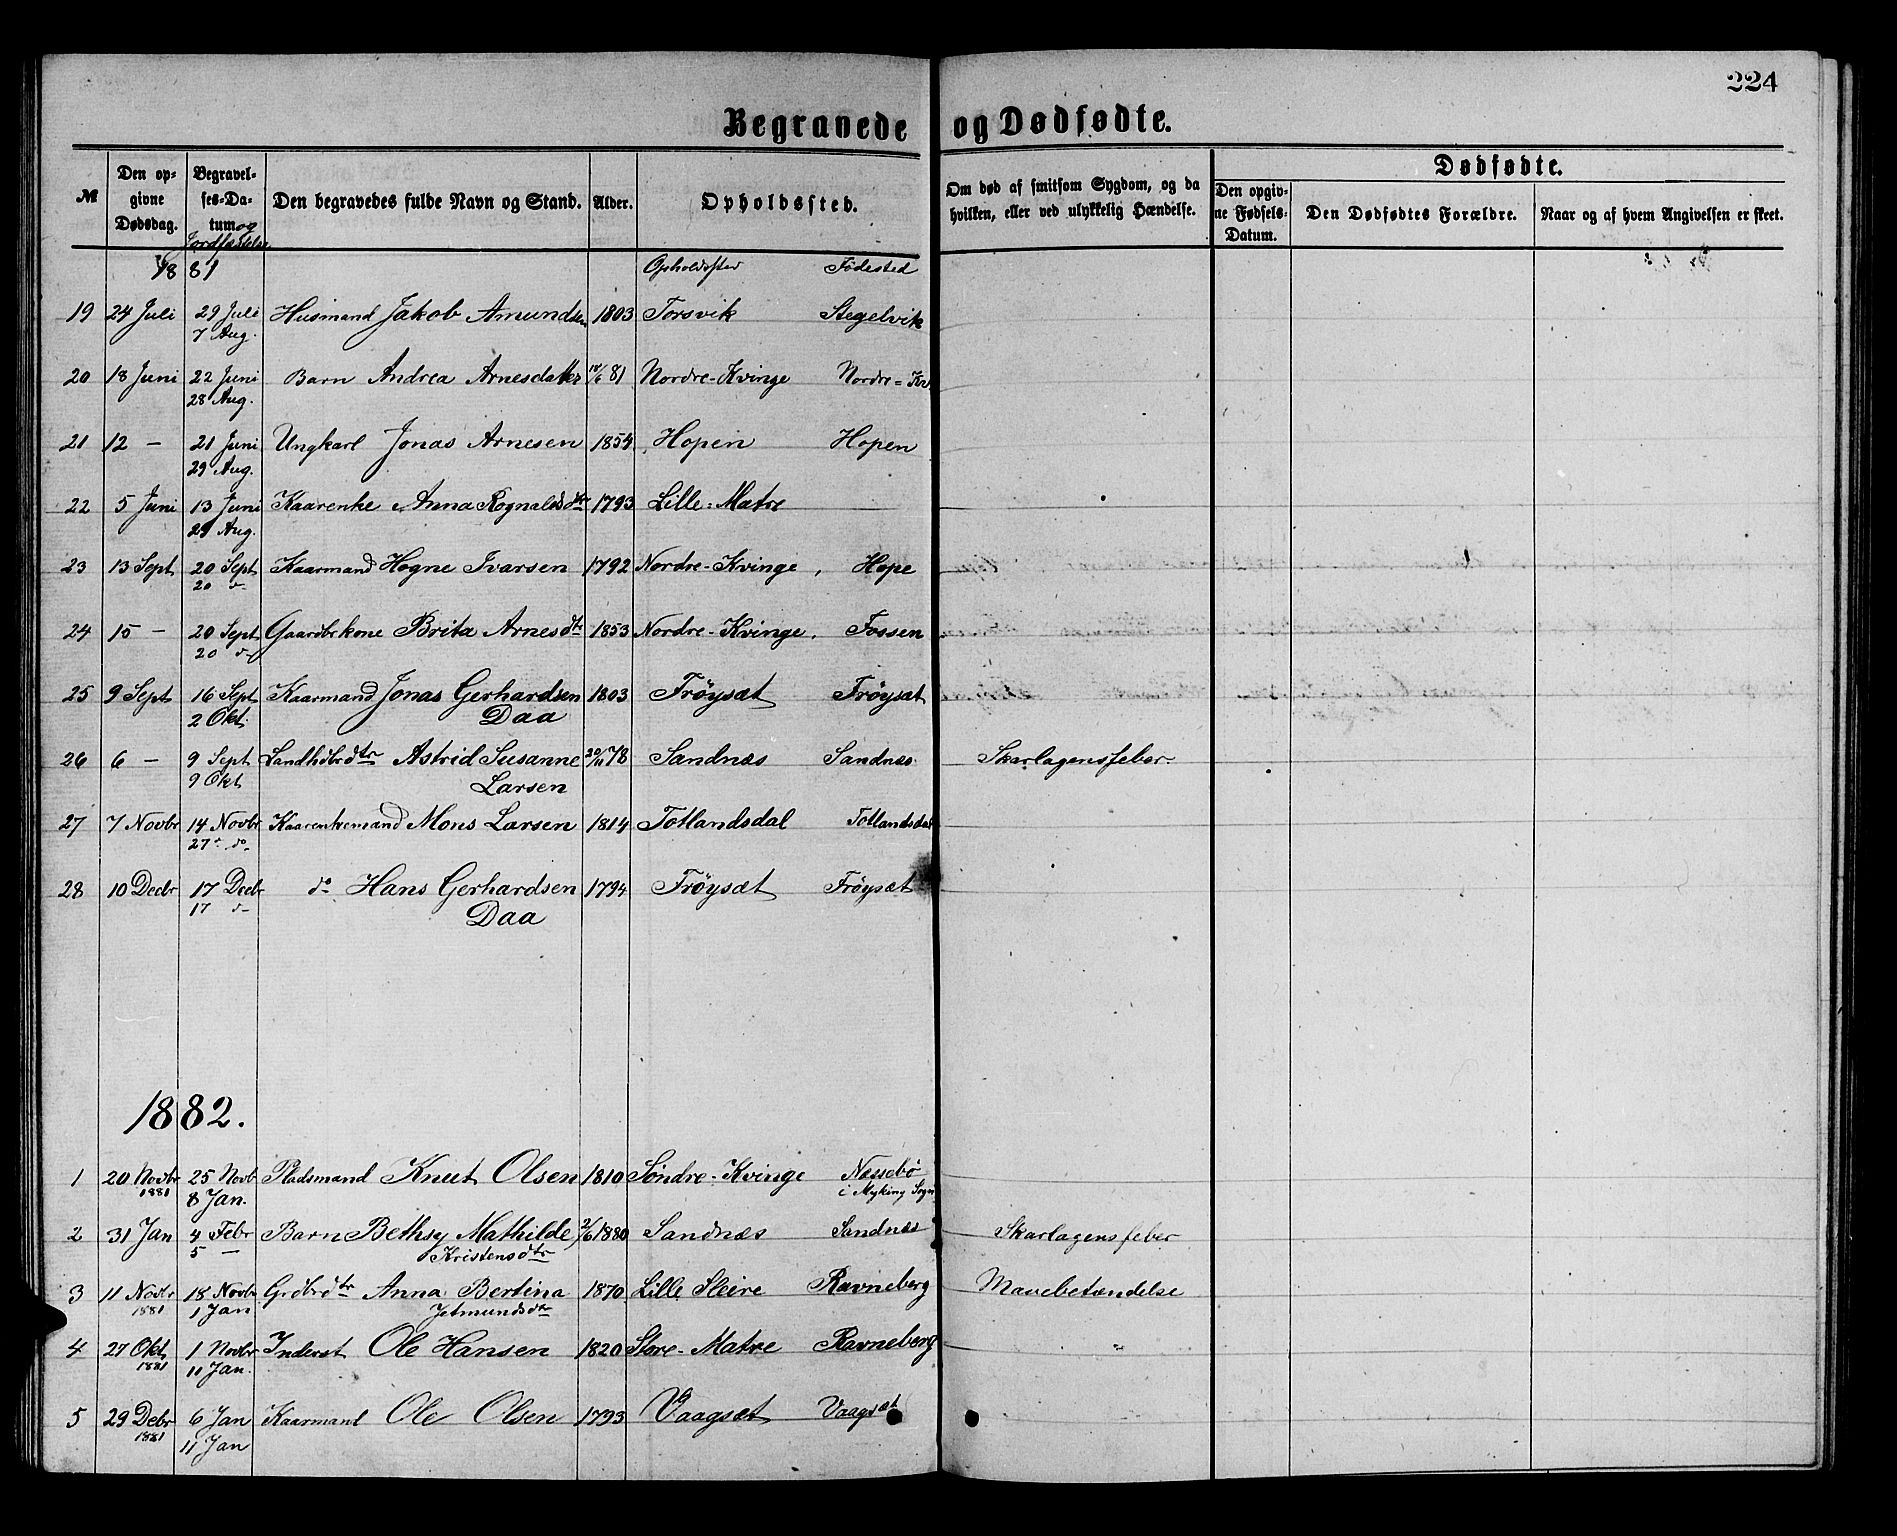 224
Begravede og Dødfødte.
№ Den opgivne Dødsdag. Begravelses-Datum og Jordfæstelse Den begravedes fulde Navn og Stand. Alder. Opholdssted. Om død af smitsom Sygdom, og da hvilken, eller ved ulykkelig Hændelse. Dødfødte. Den opgivne Fødsels-Datum. Den Dødfødtes Forældre. Naar og af hvem Angivelsen er skeet.
1881 Opholdssted Fødested
19 24 Juli 29 Juli Husmand Jakob Amundsen 1803 Torsvik Stegelvik
7 Aug.
20 18 Juni 22 Juni Barn Andrea Arnesdatter 10/6 81 Nordre-Kvinge Nordre-Kv
28 Aug.
21 12 — 21 Juni Ungkarl Jonas Arnesen 1854 Hopen Hopen
29 Aug.
22 5 Juni 13 Juni Kaarenke Anna Rognaldsdtr 1793 Lille-Matre
29 Aug.
23 13 Sept 20 Sept Kaarmand Hogne Ivarsen 1792 Nordre-Kvinge, Hope
20 d—
24 15 — 20 Sept Gaardbrkone Brita Arnesdtr 1853 Nordre-Kvinge, Fossen
20 d—
25 9 Sept 16 Sept Kaarmand Jonas Gerhardsen 1803 Frøysæt Frøysæt
2 Okt. Daa
26 6 — 9 Sept Landhdbrdtr Astrid Susanne 20/11 78 Sandnæs Sandnæs Skarlagensfeber.
9 Okt Larsen
27 7 Novbr 14 Novbr Kaarenkemand Mons Larsen 1814 Totlandsdal Totlandsdal
27 do
28 10 Decbr 17 Decbr do Hans Gerhardsen 1794 Frøysæt Frøysæt
17 d— Daa
1882.
1 20 Novbr 25 Novb Pladsmand Knut Olsen 1810 Søndre-Kvinge Næssebø
1881 8 Jan. i Myking Sogn
2 31 Jan 4 Febr Barn Bethsy Mathilde 2/6 1880 Sandnæs Sandnæs Skarlagensfeber
5 — Kristensdtr
3 11 Novbr 18 Novbr Grdbrdtr Anna Bertina 1870 Lille Sleire Ravneberg Mavebetændelse
1881 1 Jan Jetmundsdtr
4 27 Okt 1 Novbr Inderst Ole Hansen 1820 Store-Matre Ravneberg
1881 11 Jan.
5 29 Debr 6 Jan Kaarmand Ole Olsen 1793 Vaagsæt Vaagsæt
1881 11 Jan